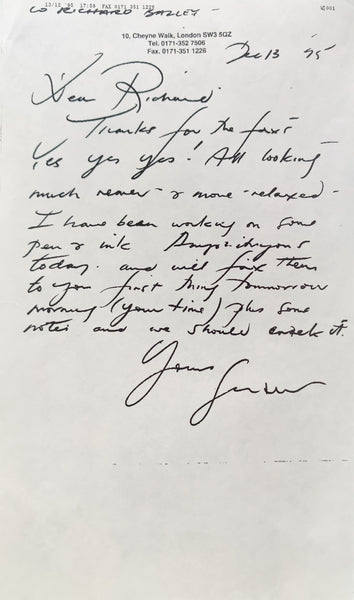 13/12 '95 17:56 FAX 0171 351 1226
001
to RICHARD BAZLEY -
10, Cheyne Walk, London SW3 5GZ
Tel. 0171-352 7506
Fax. 0171-351 1226
Dec 13 95
Dear Richard
Thanks for the faxes
Yes yes yes! All looking
much nearer & more relaxed -
I have been working on some
pen & ink
today. and will fax them
to you first thing tommorrow
morning (your time) plus some
notes and we should crack it.
Yours